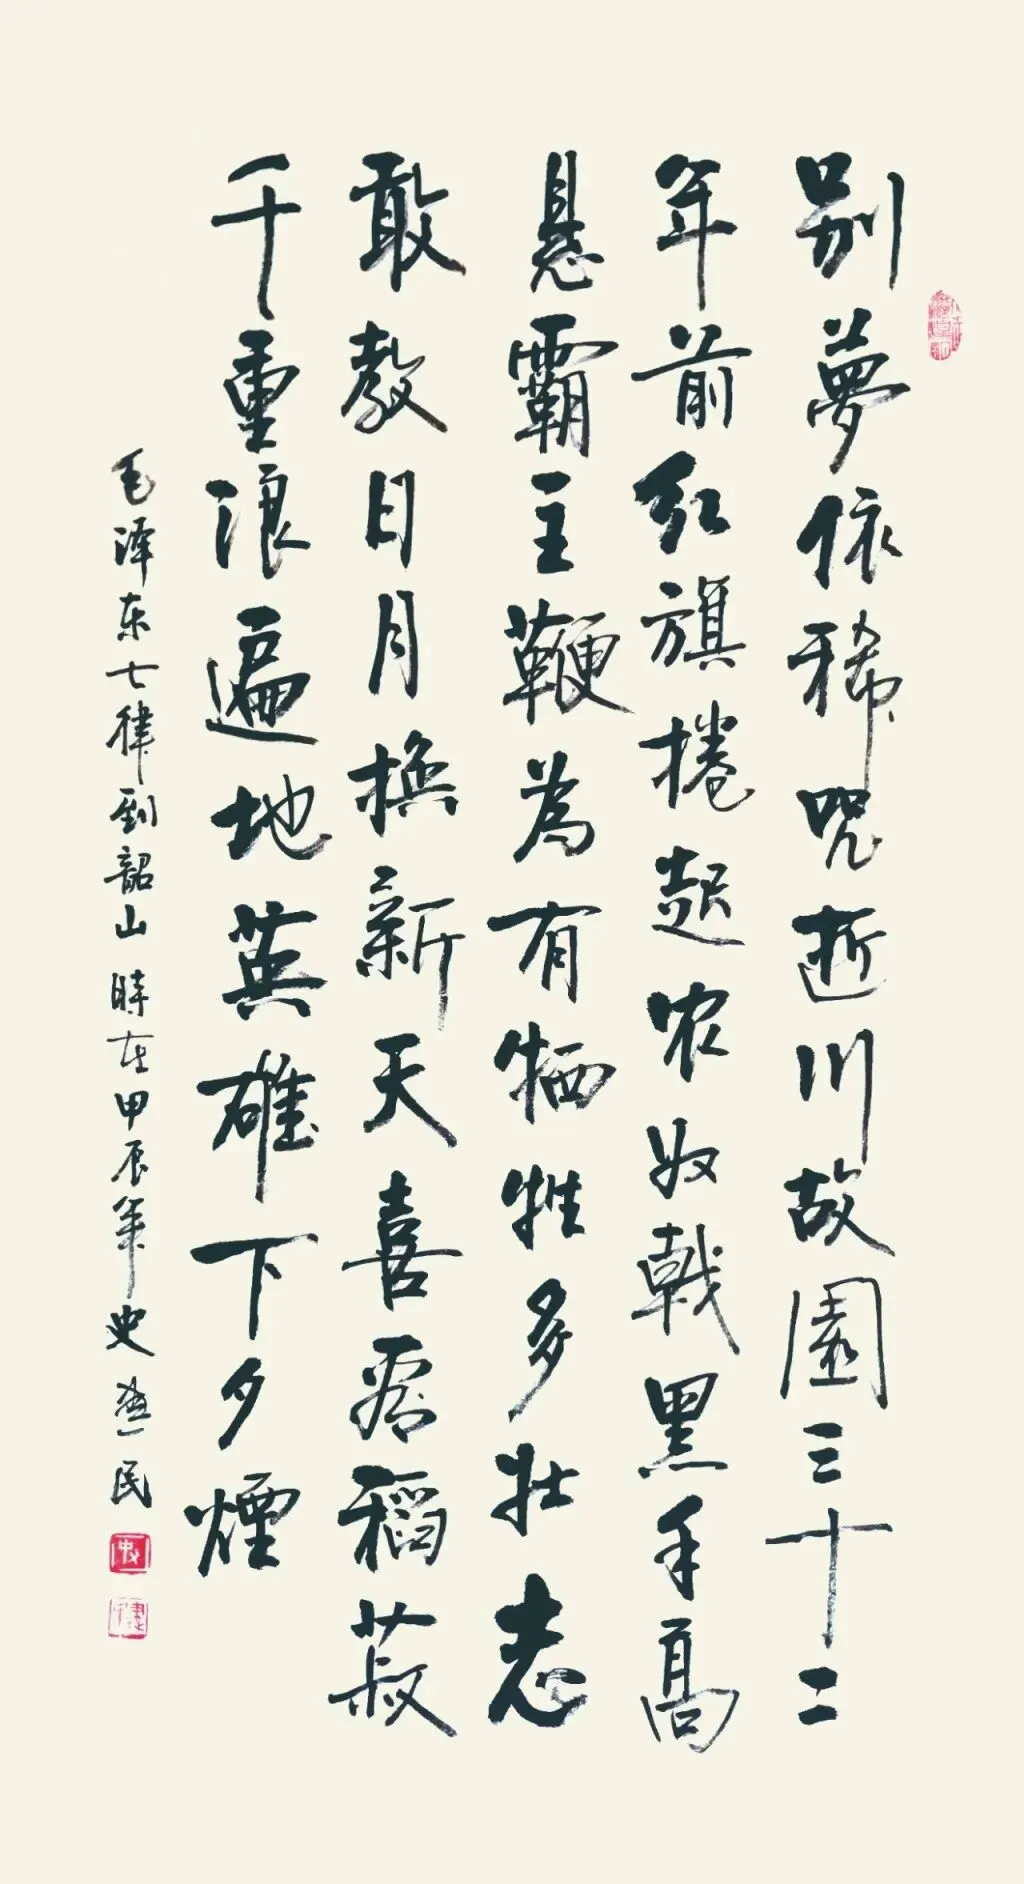 别夢依稀咒逝川故園三十二
年前红旗捲起农奴戟黑手高
悬霸主鞭為有牺牲多壮志
敢教日月换新天喜看稻菽
千重浪遍地英雄下夕煙
毛泽东七律到韶山 時在甲辰年史建民